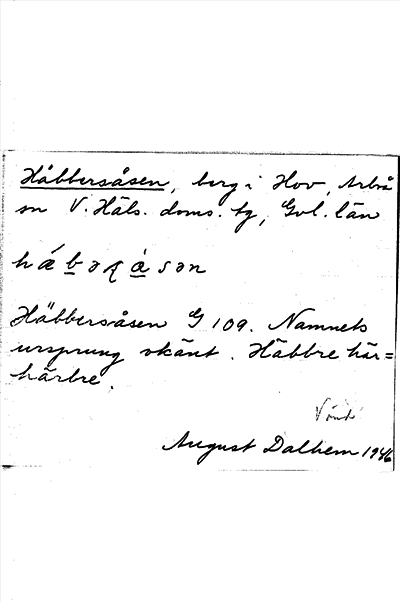 Häbbersåsen, berg i Hov, Arbrå
sn V. Häls. doms. tg, Gvl. län
Häbbersåsen G 109. Namnets
ursprung okänt. Häbbre här=
härbre.
Vänd
August Dalhem 1946